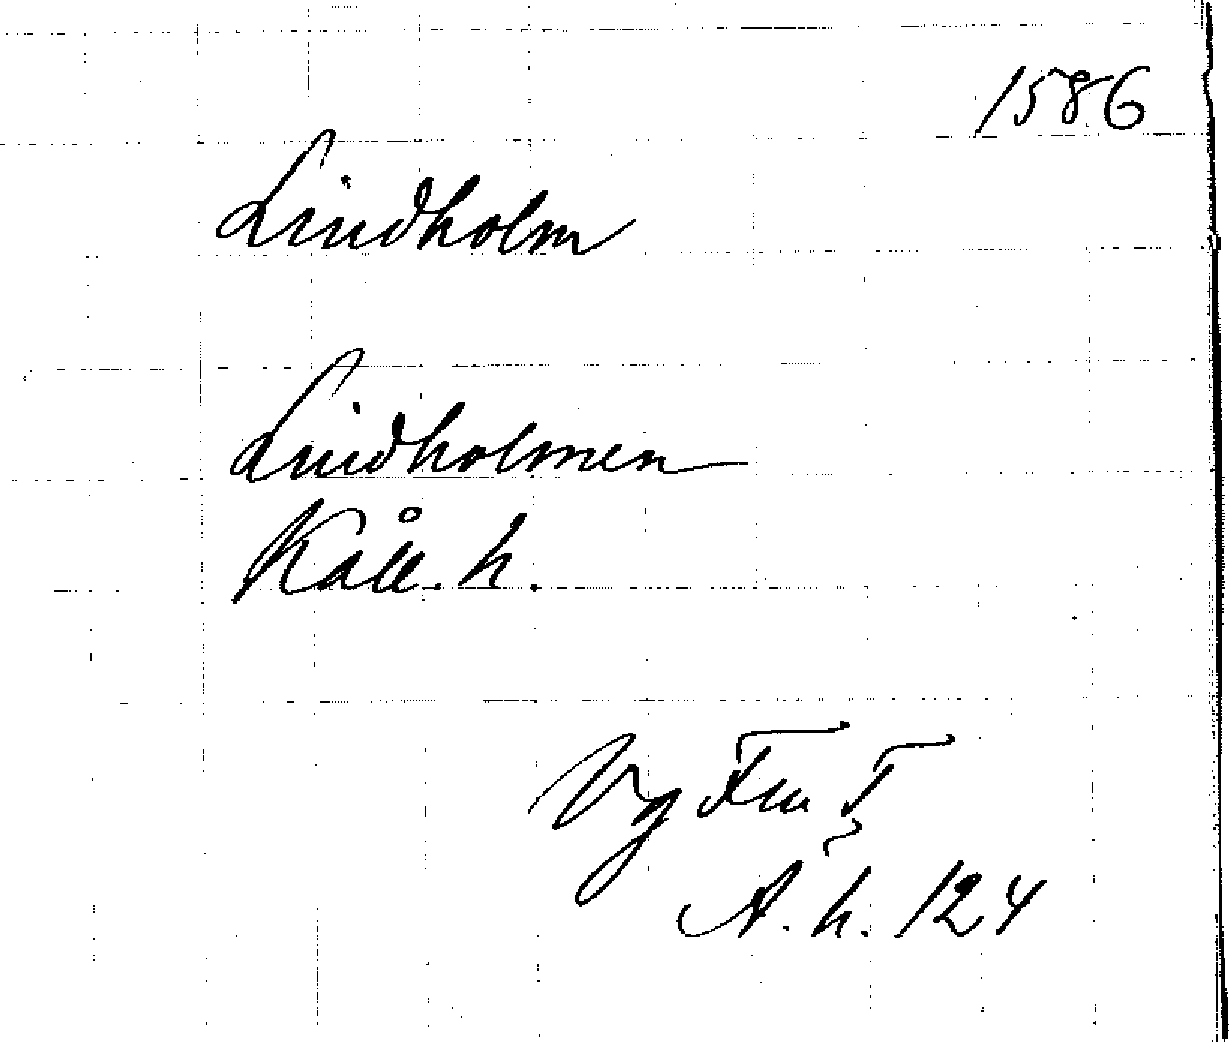 1586
Lindholm
Lindholmen
Kåll. h.
Vg Fru T
A. h. 124